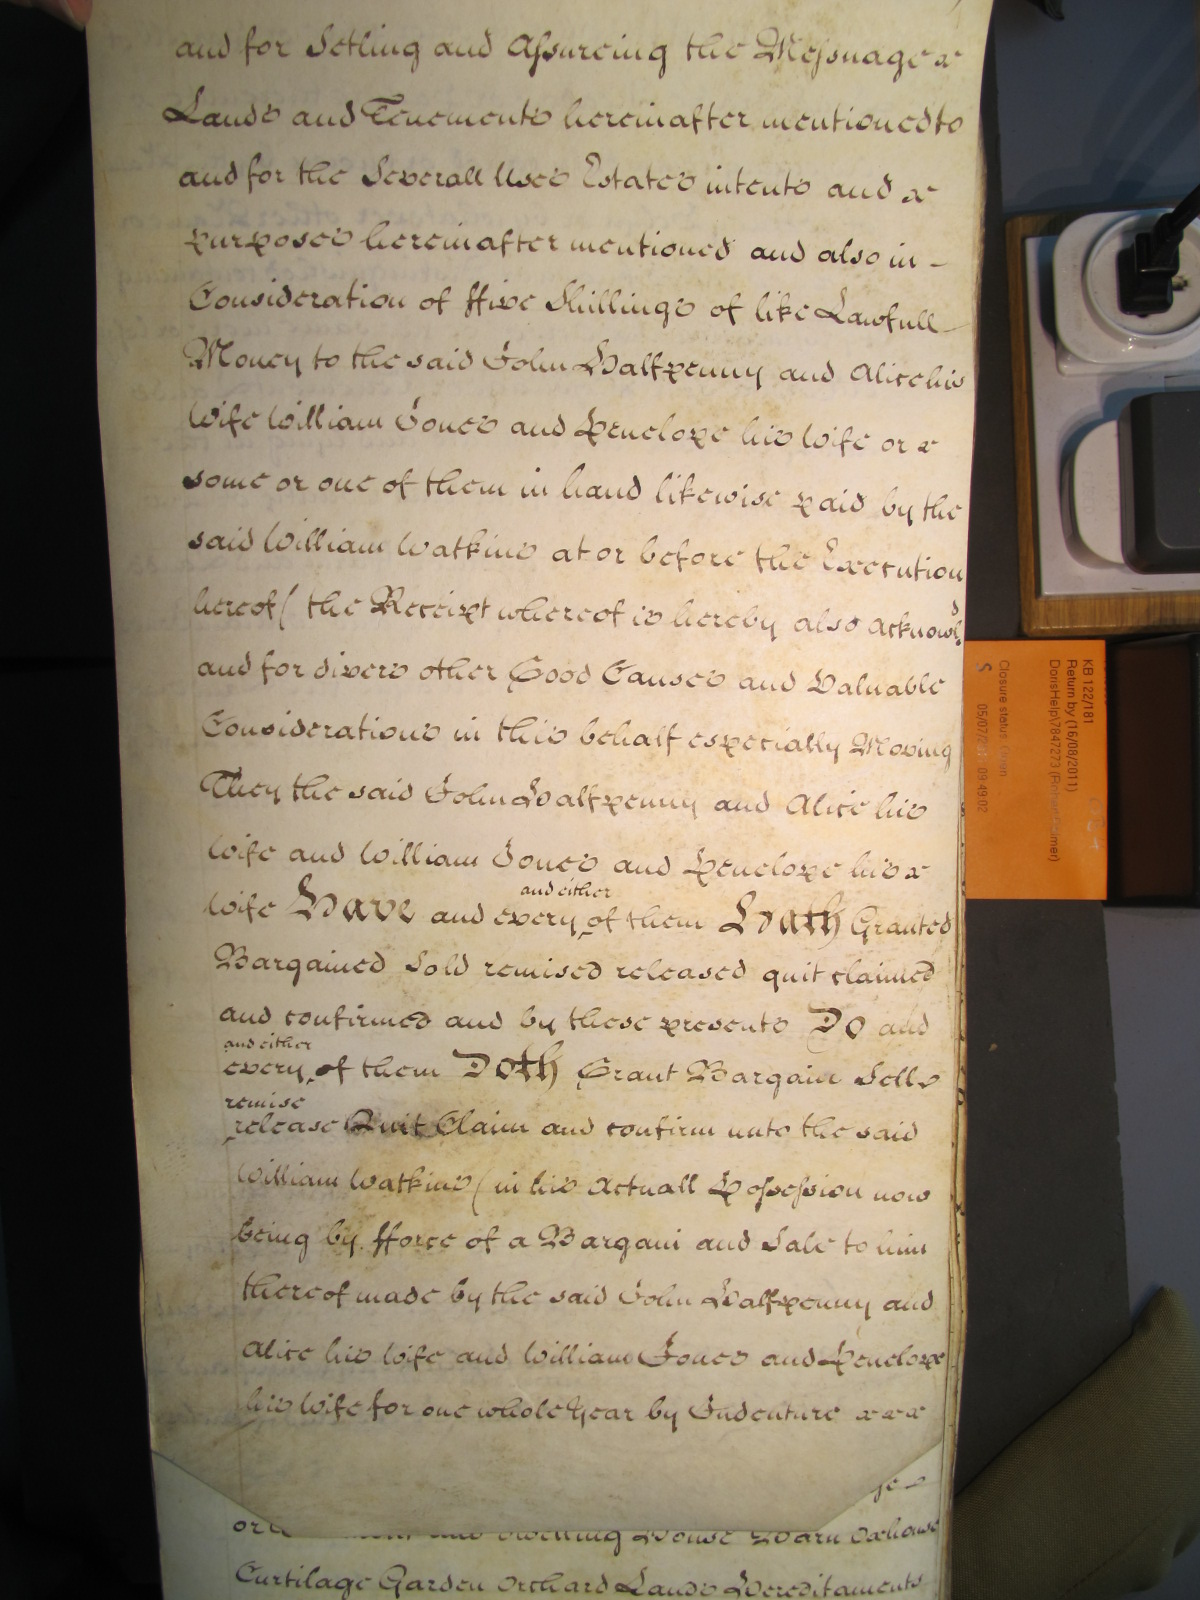 and for Setling and Assureing the Messuage x
Lands and Tenements hereinafter mentioned to
and for the Severall Uses Estates intents and x
purposes hereinafter mentioned and also in -
Consideration of ffive Shillings of like Lawfull
Money to the said John Halfpenny and Alice his
Wife William Jones and Penelope his Wife or x
some or one of them in hand likewise paid by the
said William Watkins at or before the Execution
hereof ( the Receipt whereof is hereby also Acknowl.d
and for divers other Good Causes and Valuable
Considerations in this behalf especially Moving
They the said John Halfpenny and Alice his
Wife and William Jones and Penelope his x
and either
Wife Have and every of them Hath Granted
Bargained Sold remised released quit claimed
and confirmed and by these presents Do and
and either
every of them Doth Grant Bargain Sell
remise
release Quit Claim and confirm unto the said
William Watkins ( in his Actuall Possession now
being by fforce of a Bargain and Sale to him
thereof made by the said John Halfpenny and
Alice his Wife and William Jones and Penelope
his Wife for one whole Year by Indenture x x x
Dwelling House Barn Oxhouse
Curtilage Garden Orchard Lands Hereditaments
KB 122/181
Return by (16/08/2011)
Closure status: Open
09:49:02